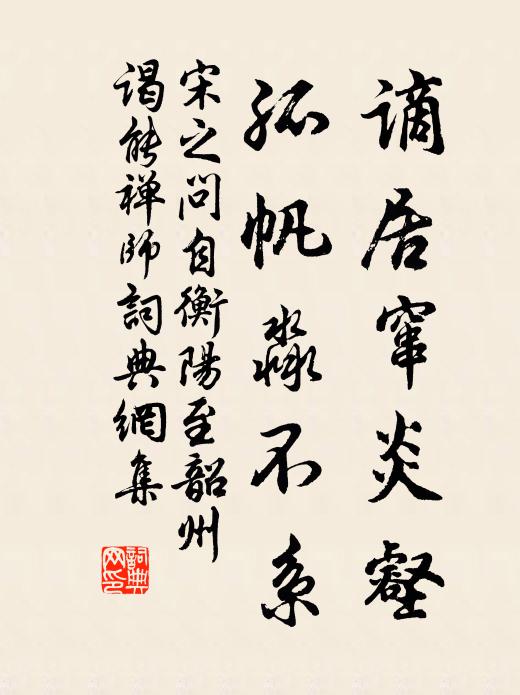 谪居窜炎壑
孤帆淼不系
宋之问自衡陽至韶州
谒能禅师詞典網集
詞典网印